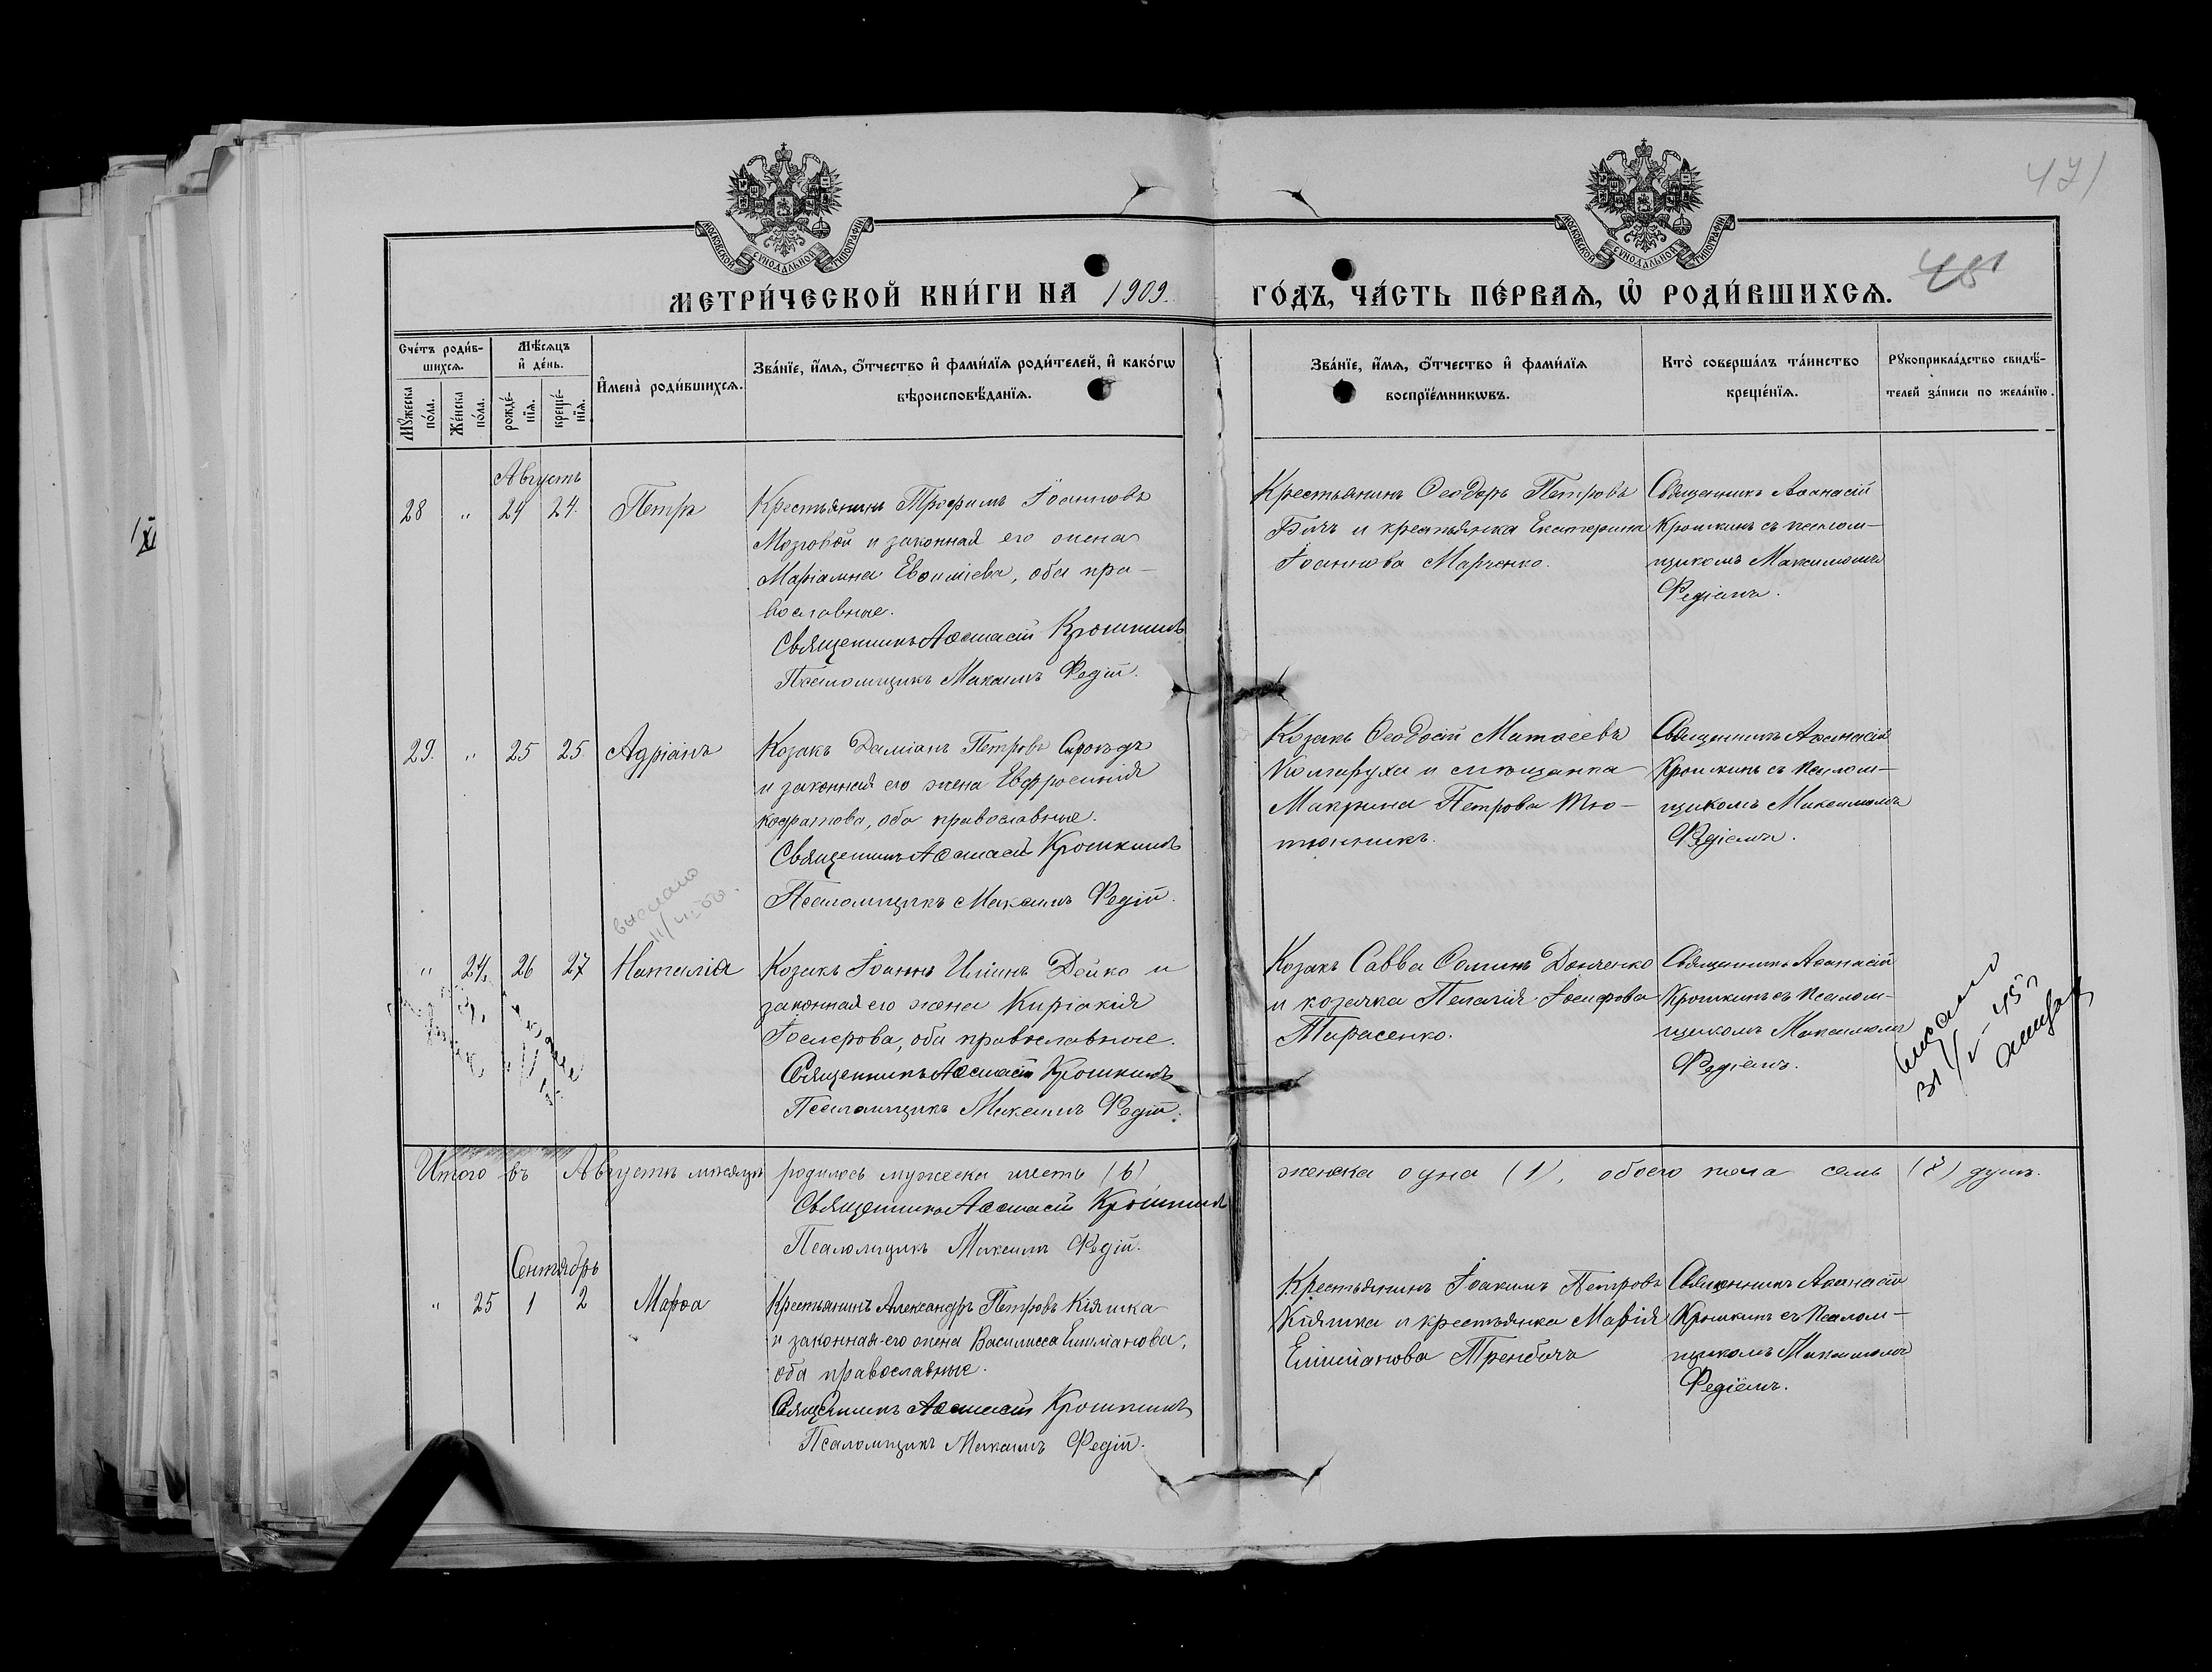 471
451
МОСКОВСКОЙ СѴНОДАЛЬНОЙ ТИПОГРАФІИ
МОСКОВСКОЙ СѴНОДАЛЬНОЙ ТИПОГРАФІИ
МЕТРИ́ЧЕСКОЙ КНИ́ГИ НА 1909. ГО́ДЪ, ЧА́СТЬ ПЕ́РВАѦ, Ѡ҆ РОДИ́ВШИХСѦ.
Сче́тъ роди́в-
шихсѧ.
Мꙋ́жеска по́ла.
Же́нска по́ла.
Мѣ́сѧцъ
и҆ де́нь.
рожде́-
нїѧ.
креще́-
нїѧ.
И҆мена̀ роди́вшихсѧ.
Зва́нїе, и҆́мѧ, ѻ҆́тчество и҆ фами́лїѧ роди́телей, и҆ како́гѡ
вѣроисповѣ́данїѧ.
Зва́нїе, и҆́мѧ, ѻ҆́тчество и҆ фами́лїѧ
воспрїе́мникѡвъ.
Кто̀ соверша́лъ та́инство
креще́нїѧ.
Рꙋкоприкла́дство свидѣ́-
телей за́писи по жела́нїю.
Августъ
28 " 24 24. Петръ
Крестьянинъ Трофимъ Іоанновъ
Мозговой и законная его жена
Маріамна Евѳиміева, оба пра-
вославные.
Священникъ Аѳанасій Крошкинъ
Псаломщикъ Максимъ Федій.
Крестьянинъ Ѳеодоръ Петровъ
и крестьянка Екатерина
Іоаннова Марченко.
Священникъ Аѳанасій
Крошкинъ съ псалом-
щикомъ Максимомъ
Федіемъ.
29. " 25 25. Адріанъ
Козакъ Даміанъ Петровъ
и законная его жена Евфросинія
Кодратова, оба православные.
Священникъ Аѳанасій Крошкинъ
Псаломщикъ Максимъ Федій.
Козакъ Ѳеодосій Матѳеевъ
и мѣщанка
Макрина Петрова Тю-
тюнникъ.
Священникъ Аѳанасій
Крошкинъ съ псалом-
щикомъ Максимомъ
Федіемъ.
выслано
" 24. 26 27 Наталія
Козакъ Іоаннъ Иліинъ Дейко и
законная его жена Киріакія
Іосифова, оба православные.
Священникъ Аѳанасій Крошкинъ
Псаломщикъ Максимъ Федій.
Козакъ Савва Ѳоминъ Донченко
и козачка Пелагія Іосифова
Тарасенко.
Священникъ Аѳанасій
Крошкинъ съ псалом-
щикомъ Максимомъ
Федіемъ.
Итого въ Августѣ мѣсяцѣ родилось мужеска шесть (6) женска одна (1), обоего пола семь (7) душъ.
Священникъ Аѳанасій Крошкинъ
Псаломщикъ Максимъ Федій.
Сентябрь
" 25 1 2 Марѳа
Крестьянинъ Александръ Петровъ Кіяшка
и законная его жена Василисса Емиліанова,
оба православные.
Священникъ Аѳанасій Крошкинъ
Псаломщикъ Максимъ Федій.
Крестьянинъ Іоакимъ Петровъ
Кіяшка и крестьянка Марія
Емиліанова Трембачъ
Священникъ Аѳанасій
Крошкинъ съ псалом-
щикомъ Максимомъ
Федіемъ.